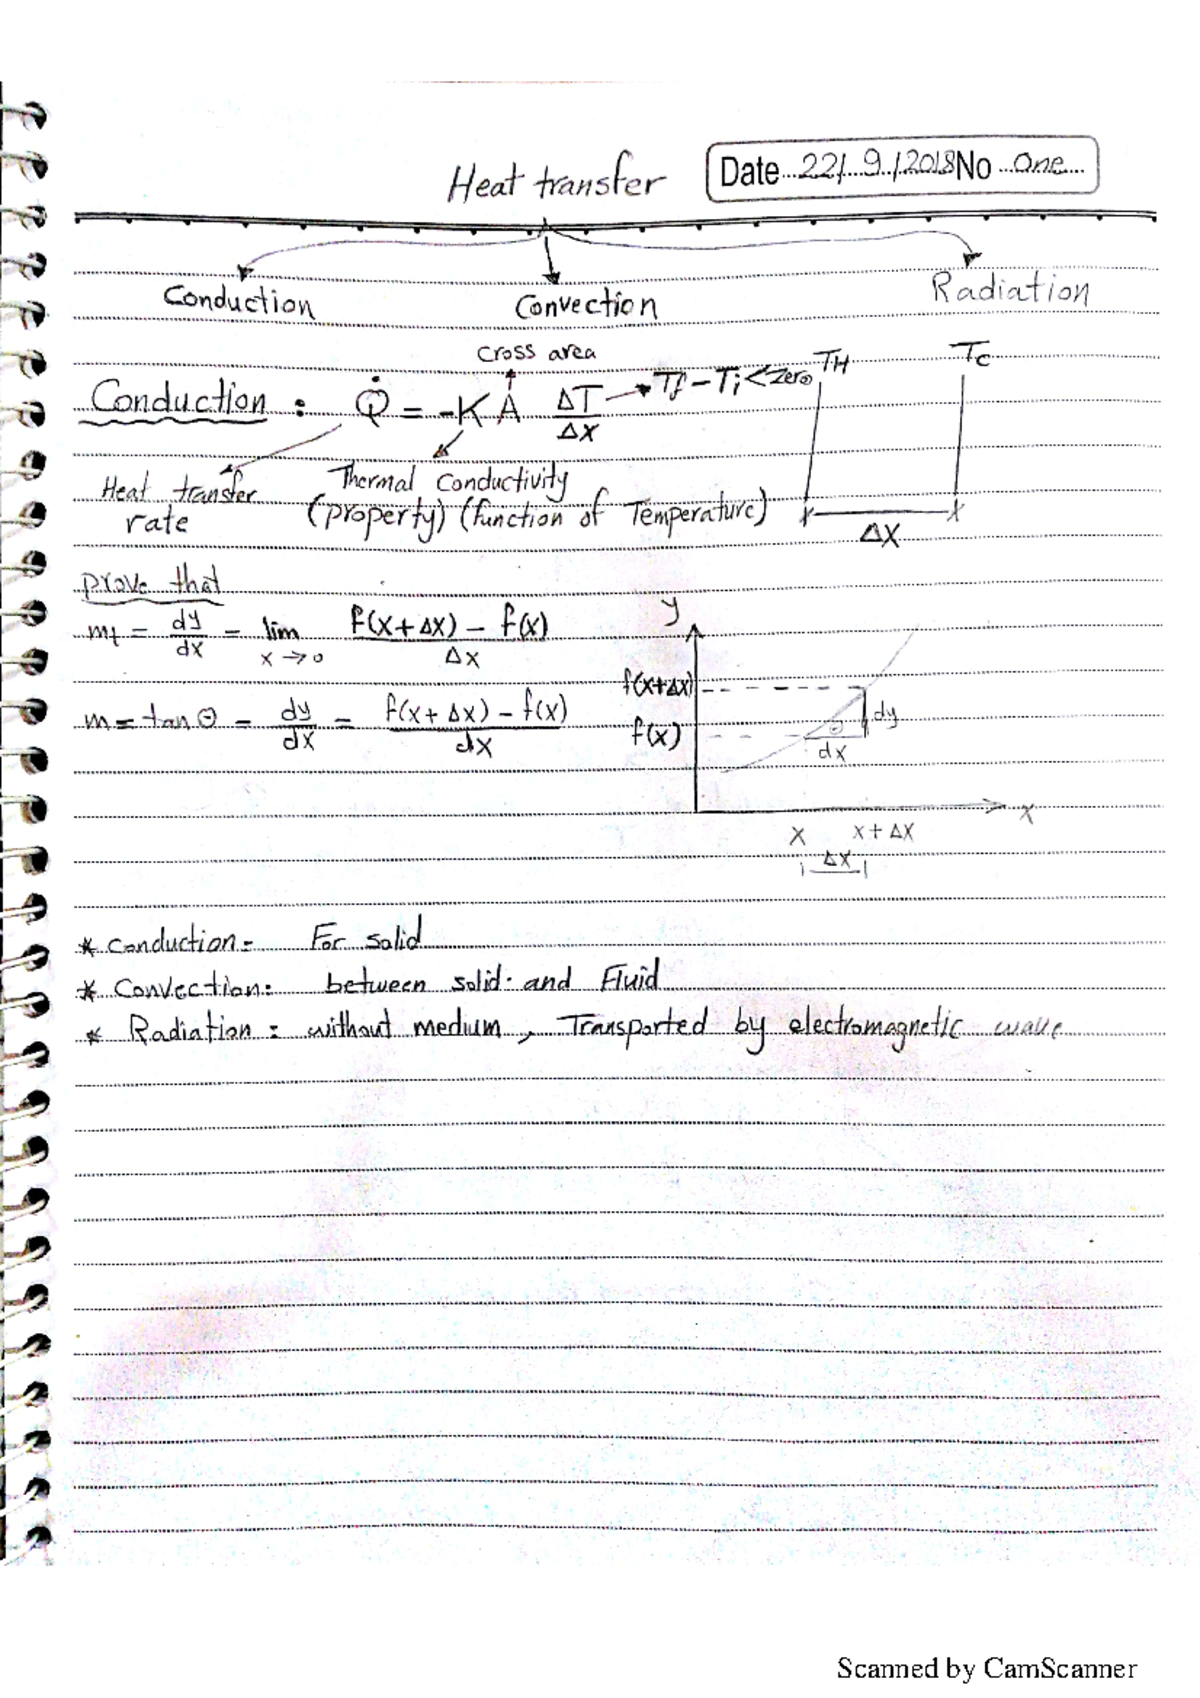 Heat transfer
Date 22/9/2018 No one
Conduction Convection Radiation
cross area
Conduction : Q̇ = -K A ΔT/ΔX → Tf - Ti < Zero TH TC
Heat transfer rate
Thermal Conductivity
(property) (function of Temperature)
ΔX
prove that
mt = dy/dx = lim x→0 f(x+Δx) - f(x) / Δx
m = tan θ = dy/dx = f(x+Δx) - f(x) / dx
y
f(x+Δx)
f(x)
θ
dy
dx
x
x x+Δx
Δx
* Conduction = For solid
* Convection: between solid and Fluid
* Radiation : without medium , Transported by electromagnetic wave
Scanned by CamScanner